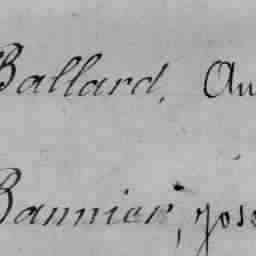 Ballard, Au
Bannier, Jose